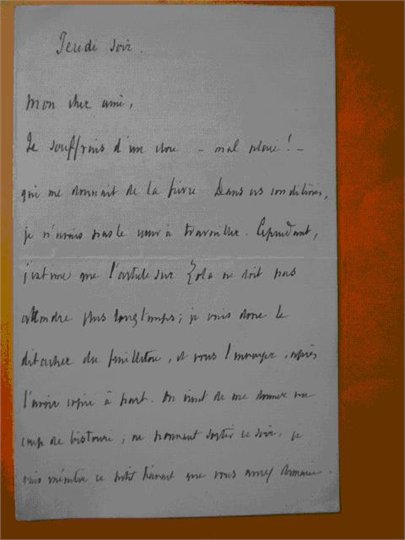 Jeudi soir.
Mon cher ami,
Je souffrais d'un clou – mal placé ! –
qui me donnait de la fièvre. Dans ces conditions,
je n'avais pas le cœur à travailler. Cependant,
j'estime que l'article sur Zola ne doit pas
attendre plus longtemps ; je vais donc le
détacher du feuilleton, et vous l'envoyer, après
l'avoir copié à part. On vient de me donner un
coup de bistouri ; ne pouvant sortir ce soir, je
vais mettre ce petit travail que vous avez